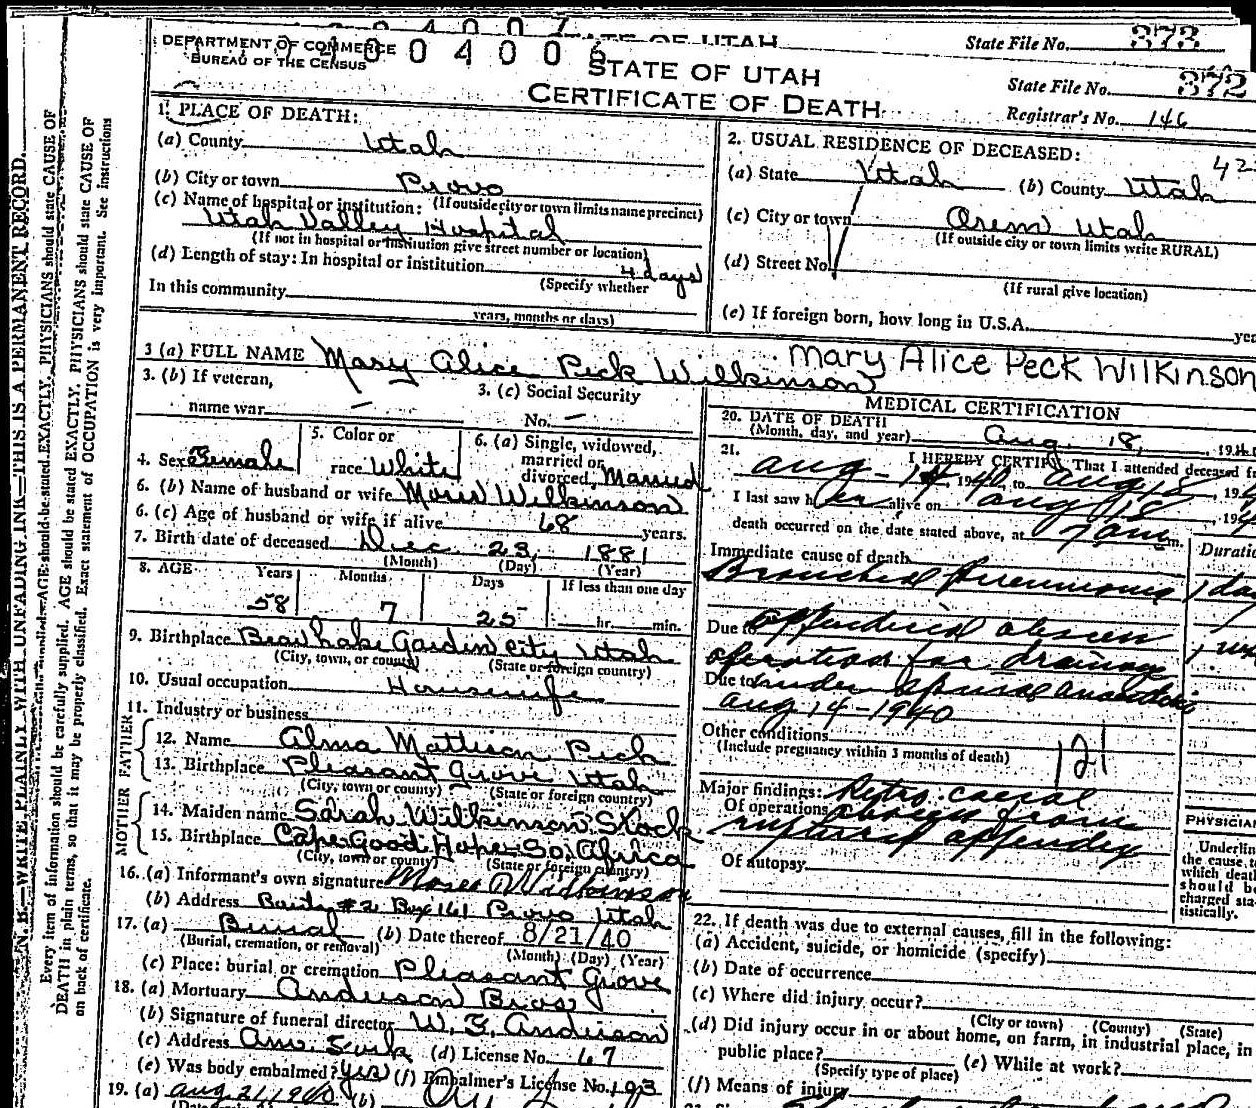 State File No. 373
DEPARTMENT OF COMMERCE
BUREAU OF THE CENSUS
04006
STATE OF UTAH
CERTIFICATE OF DEATH
State File No. 372
Registrar's No. 146
1. PLACE OF DEATH:
(a) County Utah
(b) City or town Provo
(If outside city or town limits name precinct)
(c) Name of hospital or institution:
Utah Valley Hospital
(If not in hospital or institution give street number or location)
(d) Length of stay: In hospital or institution 4 days
(Specify whether
In this community
years, months or days)
2. USUAL RESIDENCE OF DECEASED:
42
(a) State Utah (b) County Utah
(c) City or town Orem Utah
(If outside city or town limits write RURAL)
(d) Street No.
(If rural give location)
(e) If foreign born, how long in U.S.A.
3 (a) FULL NAME Mary Alice Peck Wilkinson
Mary Alice Peck Wilkinson
3. (b) If veteran,
name war —
3. (c) Social Security
No. —
4. Sex Female
5. Color or
race White
6. (a) Single, widowed,
married or
divorced, Married
6. (b) Name of husband or wife Wilkinson
6. (c) Age of husband or wife if alive 68 years.
7. Birth date of deceased Dec. 23, 1881
(Month) (Day) (Year)
8. AGE Years Months Days If less than one day
58 7 25 hr. min.
9. Birthplace Bear Lake Garden City Utah
(City, town, or county) (State or foreign country)
10. Usual occupation Housewife
11. Industry or business
FATHER
12. Name Alma Mattison Peck
13. Birthplace Pleasant Grove Utah
(City, town or county) (State or foreign country)
MOTHER
14. Maiden name Sarah Wilkinson Stock
15. Birthplace Cape Good Hope So. Africa
(City, town or county) (State or foreign country)
16. (a) Informant's own signature Wilkinson
(b) Address #2 Box 161 Provo Utah
17. (a) Burial (b) Date thereof 8/21/40
(Burial, cremation, or removal) (Month) (Day) (Year)
(c) Place: burial or cremation Pleasant Grove
18. (a) Mortuary Anderson Bros
(b) Signature of funeral director Anderson
(c) Address Am. Fork (d) License No. 67
(e) Was body embalmed? Yes (f) Embalmer's License No. 193
19. (a) Aug 21 1940 (b)
MEDICAL CERTIFICATION
20. DATE OF DEATH
(Month, day, and year) Aug. 18, 194
21. I HEREBY CERTIFY, That I attended deceased
Aug - 14 1940, to Aug 18, 19
I last saw her alive on Aug 18, 19
death occurred on the date stated above, at 7 am m.
Immediate cause of death
Duratio
Bronchial Pneumonia 1 day
Due to appendiceal abscess
operation for drainage
Due to under spinal anaesthesia
Aug 14 - 1940
Other conditions
(Include pregnancy within 3 months of death)
121
Major findings: Retro caecal
Of operations abscess from
ruptured appendix
Of autopsy
PHYSICIAN
Underlin
the cause t
which deat
should b
charged sta-
tistically.
22. If death was due to external causes, fill in the following:
(a) Accident, suicide, or homicide (specify)
(b) Date of occurrence
(c) Where did injury occur?
(City or town) (County) (State)
(d) Did injury occur in or about home, on farm, in industrial place, in
public place? (e) While at work?
(Specify type of place)
(f) Means of injury
N. B.—WRITE PLAINLY WITH UNFADING INK—THIS IS A PERMANENT RECORD.
Every item of information should be carefully supplied. AGE should be stated EXACTLY. PHYSICIANS should state CAUSE OF
DEATH in plain terms, so that it may be properly classified. Exact statement of OCCUPATION is very important. See instructions
on back of certificate.